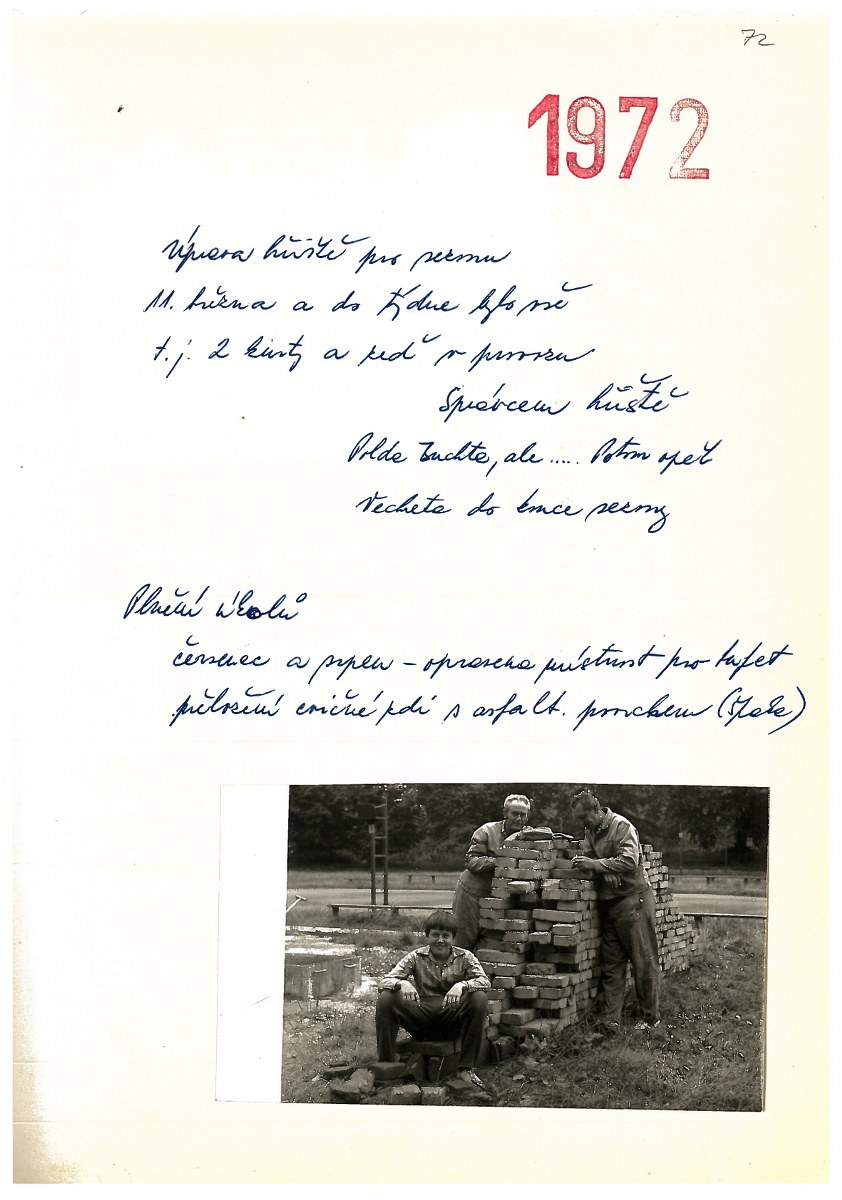 72
1972
Úprava hřiště pro sezonu
11. března a do týdne bylo vše
t. j. 2 kurty a zeď v provozu
Správcem hřiště
Polda Buchta, ale ..... Potom opět
Vecheta do konce sezony
Plnění úkolů
červenec a srpen - opravena místnost pro bufet
přeložení cvičné zdi s asfalt. povrchem